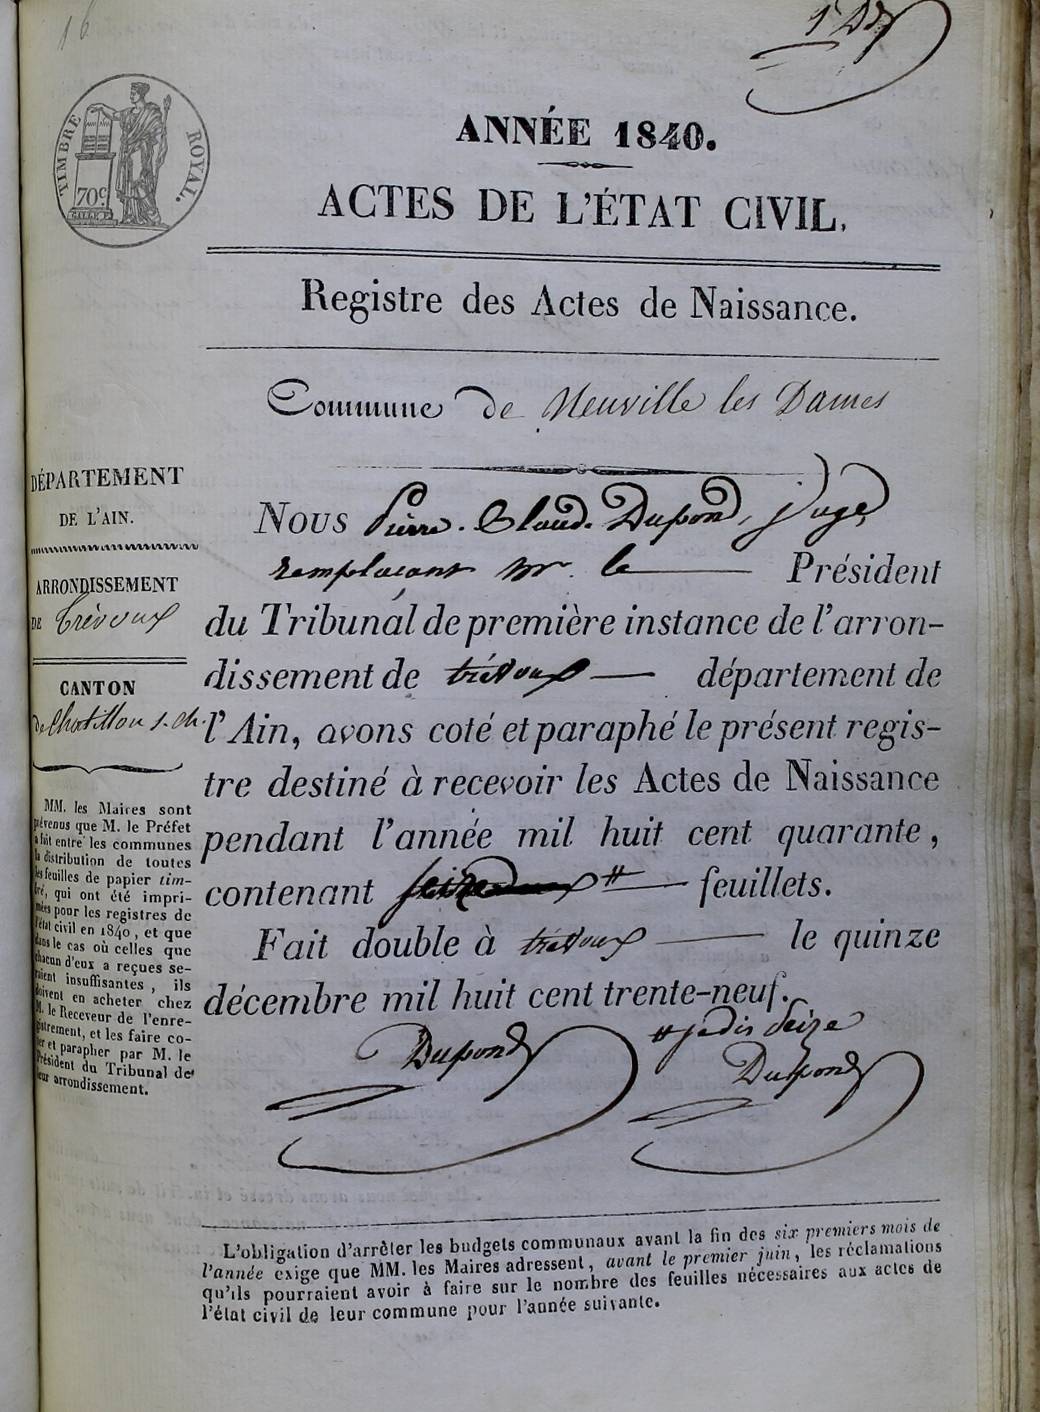 16
1er
TIMBRE ROYAL.
70c
ANNÉE 1840.
ACTES DE L'ÉTAT CIVIL,
Registre des Actes de Naissance.
Commune de Neuville les Dames
DÉPARTEMENT
DE L'AIN.
ARRONDISSEMENT
DE Trévoux
CANTON
de Chatillon s. ch.
MM. les Maires sont
prévenus que M. le Préfet
a fait entre les communes
la distribution de toutes
les feuilles de papier tim-
bré, qui ont été impri-
mées pour les registres de
l'état civil en 1840, et que
dans le cas où celles que
chacun d'eux a reçues se-
raient insuffisantes, ils
doivent en acheter chez
M. le Receveur de l'enre-
gistrement, et les faire co-
ter et parapher par M. le
Président du Tribunal de
leur arrondissement.
Nous Pierre. Claude Dupond, Juge
remplaçant mr. le Président
du Tribunal de première instance de l'arron-
dissement de trévoux département de
l'Ain, avons coté et paraphé le présent regis-
tre destiné à recevoir les Actes de Naissance
pendant l'année mil huit cent quarante,
contenant # feuillets.
Fait double à trévoux le quinze
décembre mil huit cent trente-neuf.
# je dis Seize
Dupond
Dupond
L'obligation d'arrêter les budgets communaux avant la fin des six premiers mois de
l'année exige que MM. les Maires adressent, avant le premier juin, les réclamations
qu'ils pourraient avoir à faire sur le nombre des feuilles nécessaires aux actes de
l'état civil de leur commune pour l'année suivante.